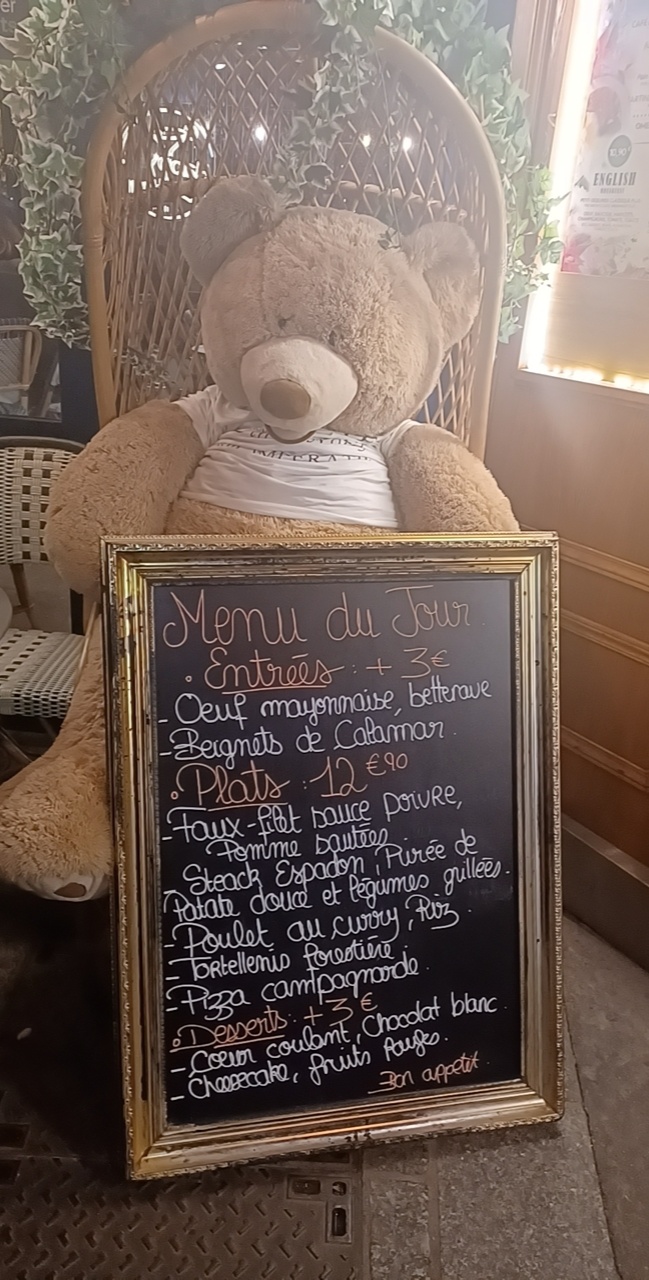 ENGLISH
Menu du Jour
• Entrées : + 3€
- Oeuf mayonnaise, betterave
- Beignets de Calamar.
• Plats : 12 €90
- Faux-filet sauce poivre,
Pomme sautées
- Steack Espadon, Purée de
Patate douce et légumes grillées.
- Poulet au curry, Riz.
- Tortellenis forestière.
- Pizza campagnarde.
• Desserts : + 3€
- Coeur coulant, Chocolat blanc.
- Cheesecake, fruits Rouges.
Bon appetit.